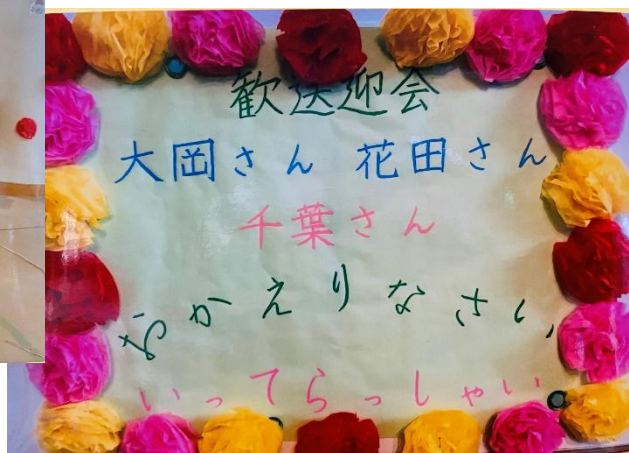 歓送迎会
大岡さん 花田さん
千葉さん
おかえりなさい
いってらっしゃい